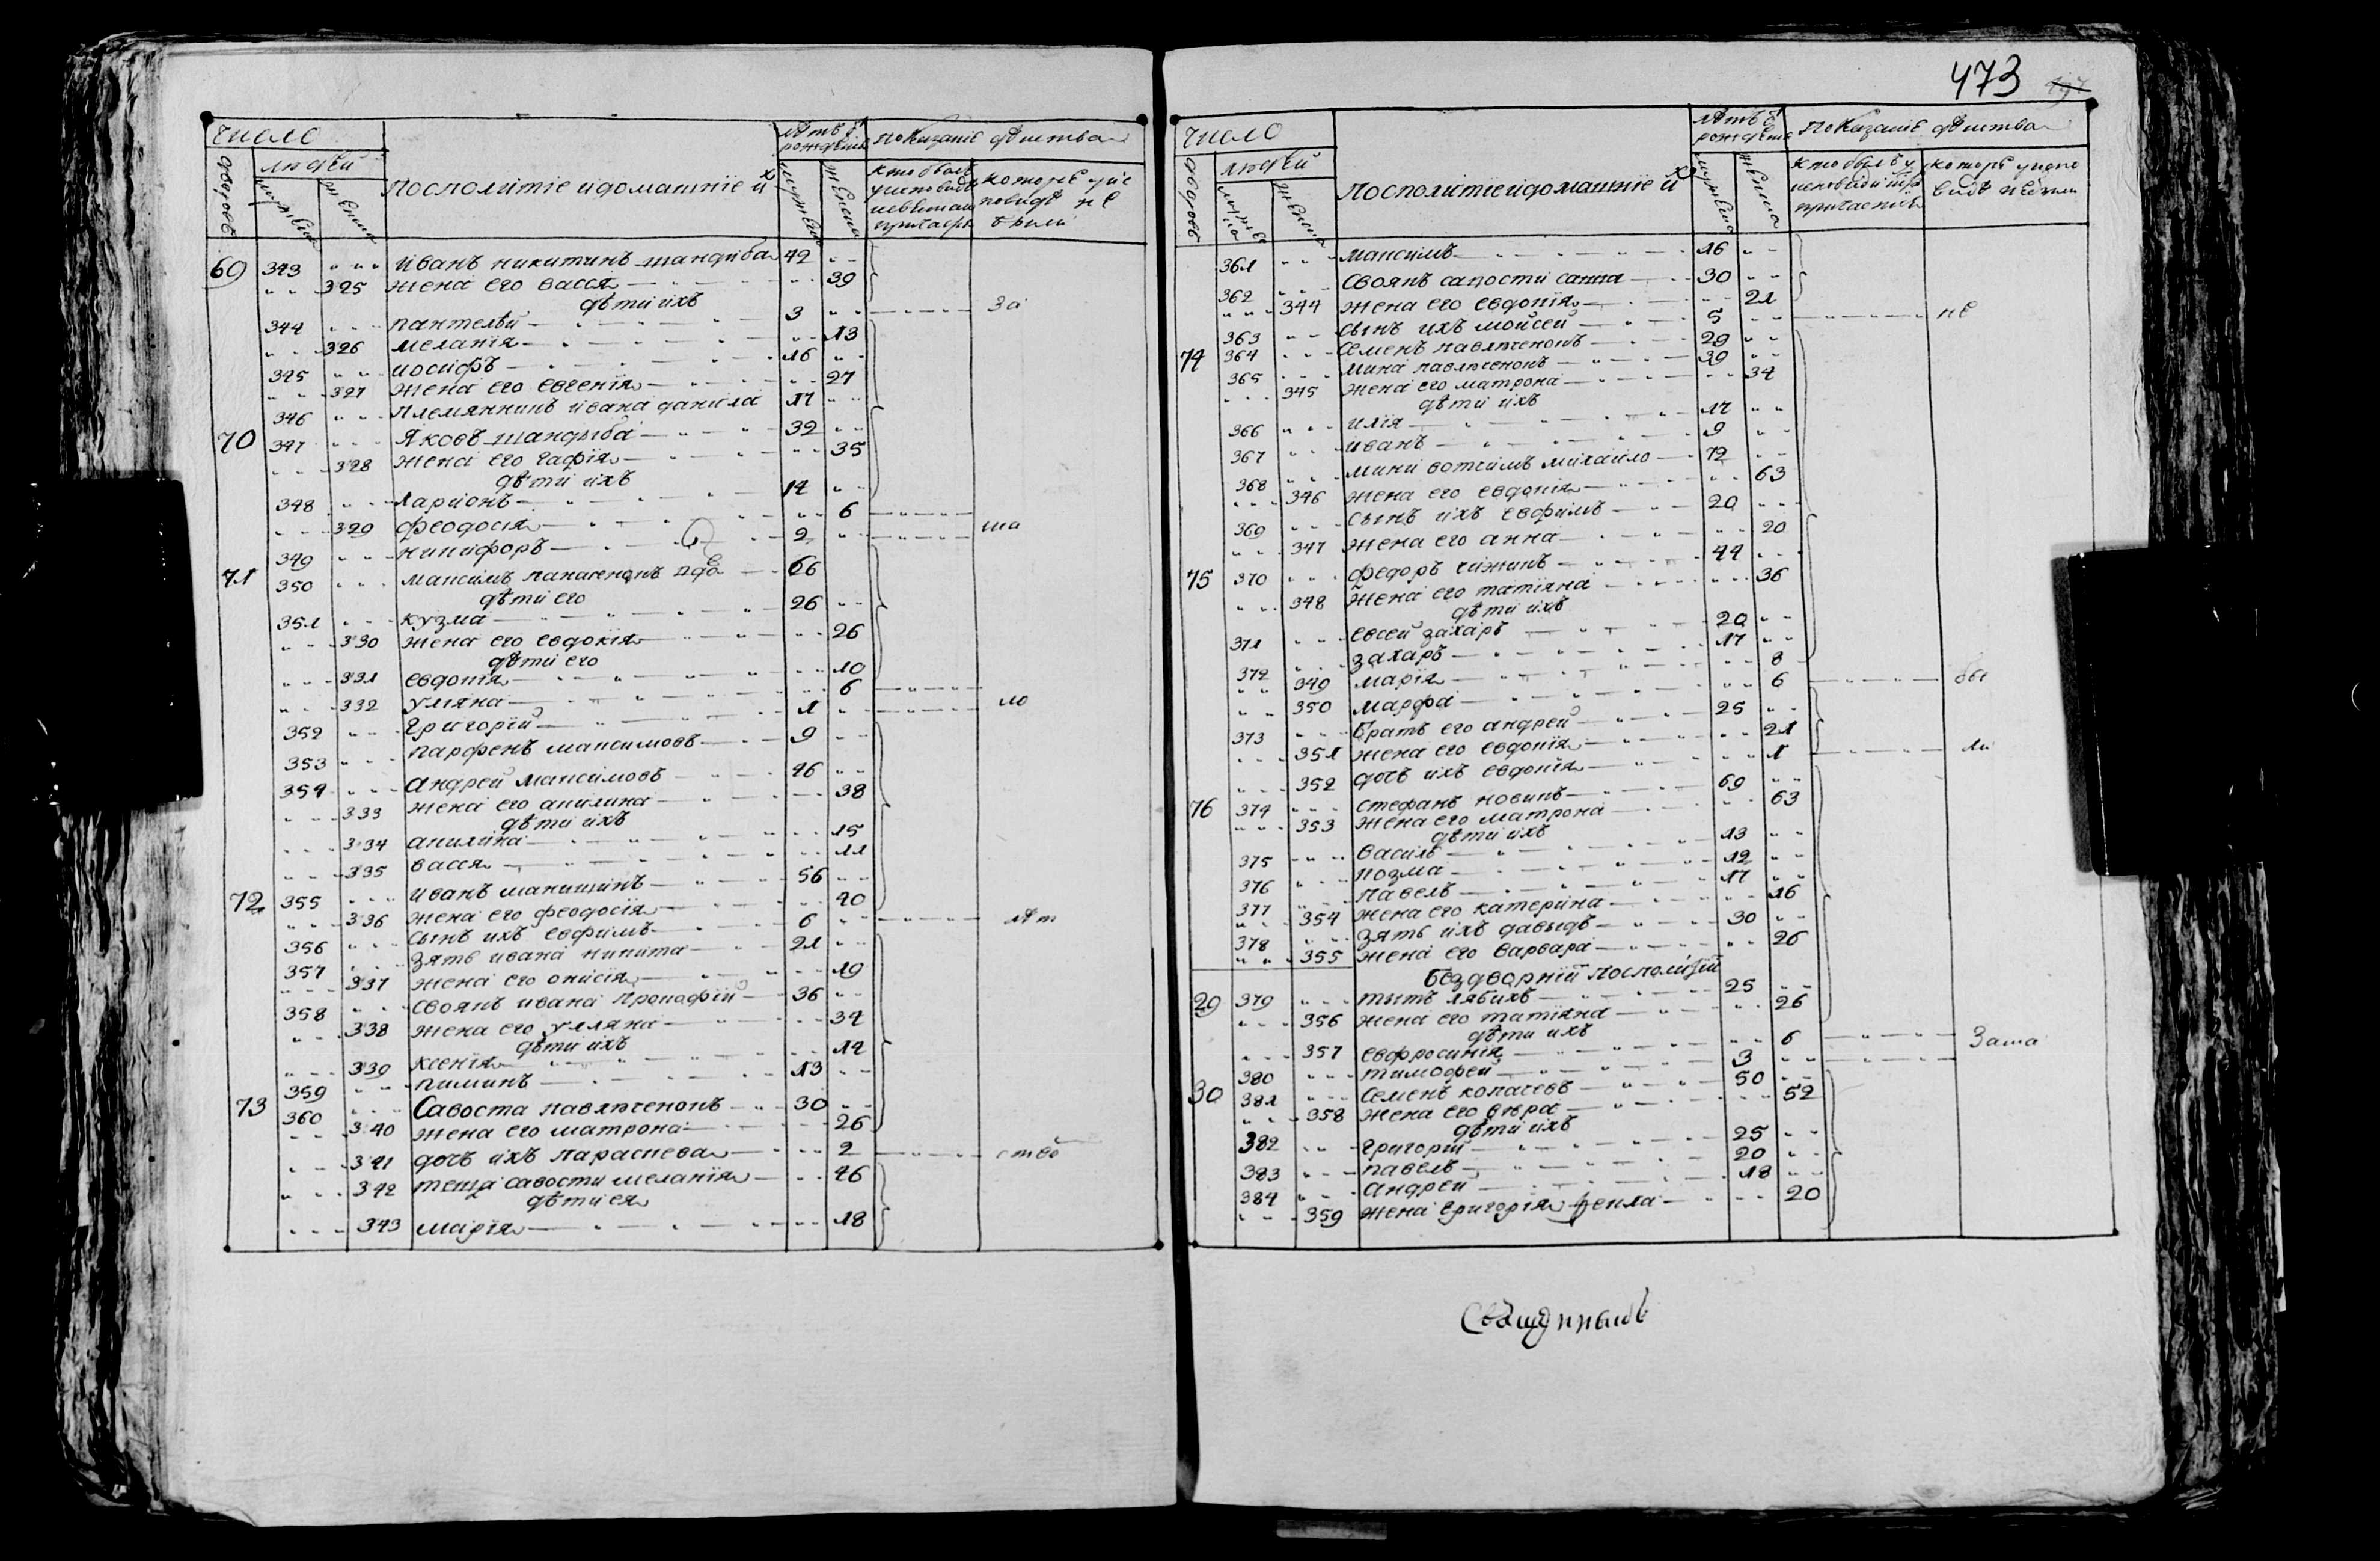 473
число
дворовъ
людей
мужеска
женска
посполитіе и домашніе их
лѣтъ ѿ рожденія
мужеска
женска
показаніе дѣиства
69 343 иванъ никитинъ шандиба 42
325 жена его васся 39
дѣти ихъ
344 пантелѣй 3 за
326 меланія 13
345 иосифъ 16
327 жена его евгенія 27
346 племянникъ ивана данила 17
70 347 яковъ шандыба 32
328 жена его гафія 35
дѣти ихъ
348 ларионъ 14
329 феодосія 6
349 никифоръ 2 ша
71 350 максимъ 66
дѣти его
351 кузма 26
330 жена его евдокія 26
дѣти его
331 евдокія 10
332 уляна 6
352 григорій 1 ло
353 парфенъ максимовъ 9
354 андрей максимовъ 46
333 жена его акилина 38
дѣти ихъ
334 акилина 15
335 васся 11
72 355 иванъ макишинъ 56
336 жена его феодосія 40
356 сынъ ихъ евфимъ 6 лѣт
357 зять ивана никита 21
337 жена его онисія 19
358 своякъ ивана прокофій 36
338 жена его улляна 34
дѣти ихъ
339 ксенія 14
359 пиминъ 13
73 360 савоста павлюченокъ 30
340 жена его матрона 26
341 дочъ ихъ параскева 2 ство
342 теща савости меланія 46
дѣти ея
343 марія 18
число
дворовъ
людей
женска
посполитіе и домашніе их
лѣтъ ѿ рожденія
мужеска
женска
показаніе дѣиства
361 максимъ 16
362 своякъ савости савка 30
344 жена его евдокія 21
363 сынъ ихъ мойсей 5 не
74 364 семенъ павлюченокъ 29
365 мина павлюченокъ 39
345 жена его матрона 34
дѣти ихъ
366 илія 17
367 иванъ 9
368 мини вотчимъ михайло 72
346 жена его евдокія 63
369 сынъ ихъ евфимъ 20
347 жена его анна 20
75 370 федоръ чижикъ 44
348 жена его татіяна 36
дѣти ихъ
371 евсей захаръ 20
372 захаръ 17
349 марія 8
350 марфа 6 бы
373 братъ его андрей 25
351 жена его евдокія 21
352 дочъ ихъ евдокія 1 ли
76 374 стефанъ новикъ 69
353 жена его матрона 63
дѣти ихъ
375 василь 13
376 козма 12
377 павелъ 17
354 жена его катерина 16
378 зять ихъ давыдъ 30
355 жена его варвара 26
бездворній посполитіи
29 379 тытъ лябихъ 25
356 жена его татіяна 26
дѣти ихъ
357 евфросинія 6 Заша
380 тимофей 3
30 381 семенъ копачевъ 50
358 жена его вѣра 52
дѣти ихъ
382 григорій 25
383 павелъ 20
384 андрей 18
359 жена григорія фекла 20